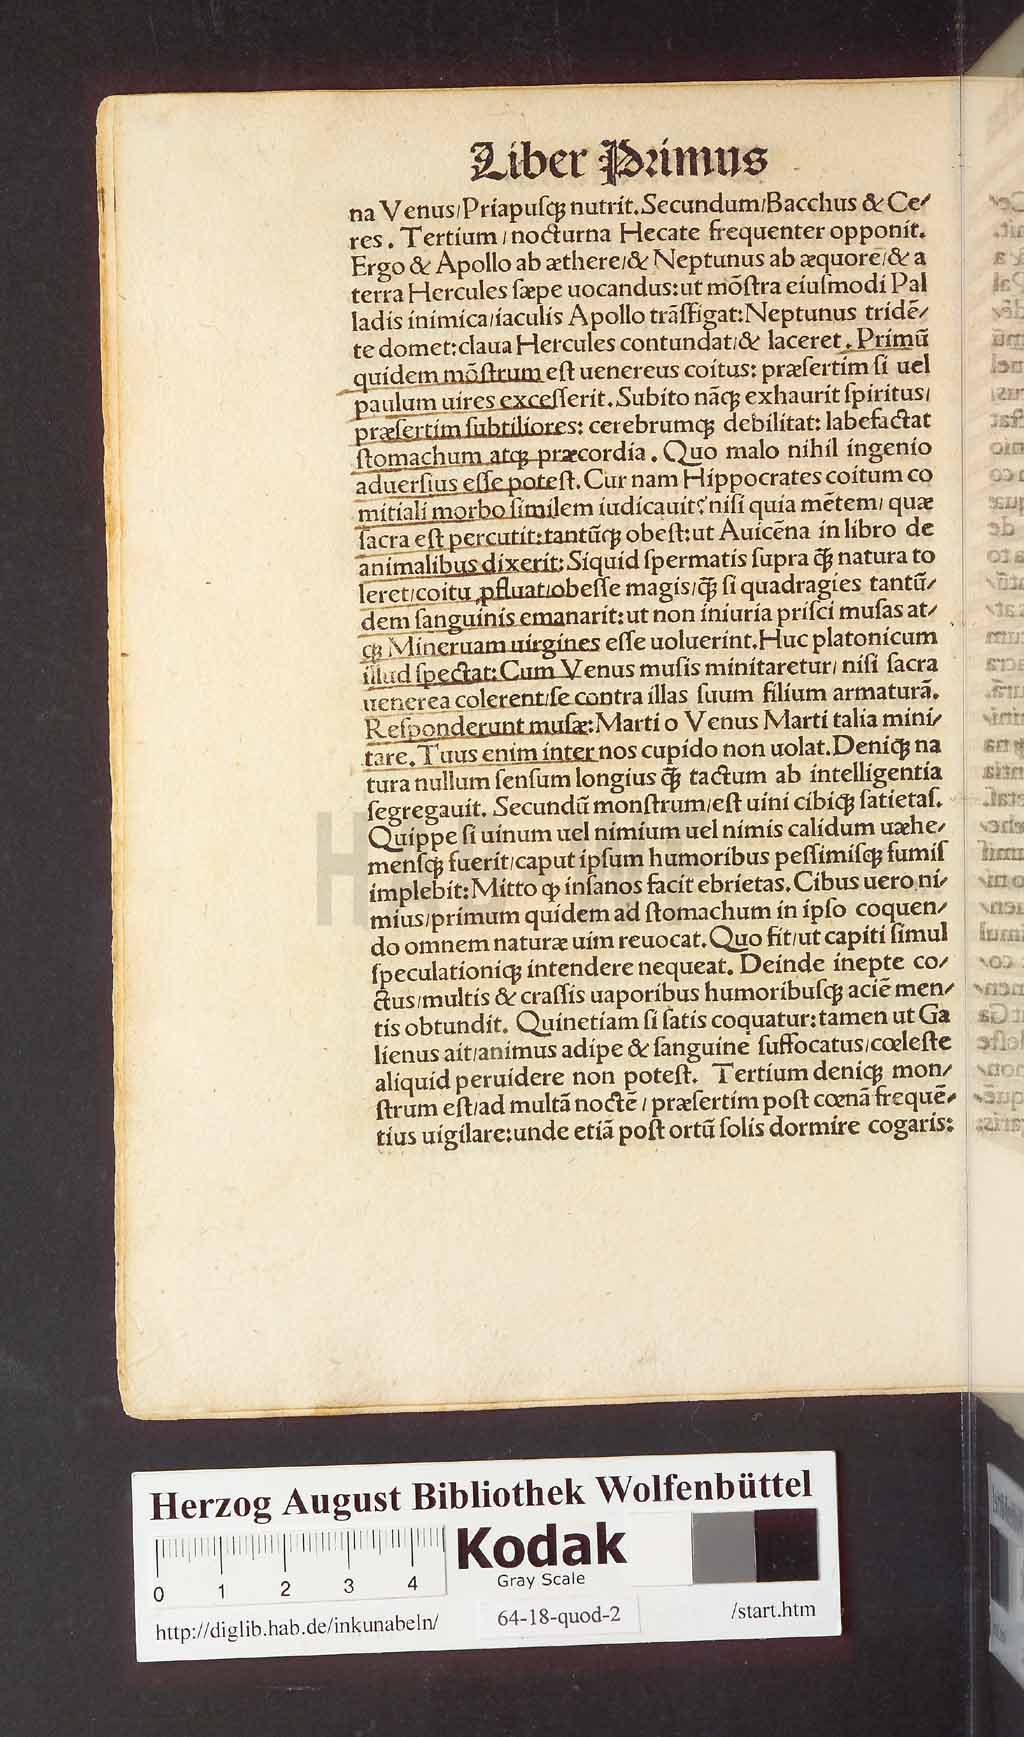 Liber Primus
na Venus/Priapuſqꝫ nutrit. Secundum/Bacchus & Ce/
res. Tertium/nocturna Hecate frequenter opponit.
Ergo & Apollo ab æthere/& Neptunus ab æquore/& a
terra Hercules ſæpe uocandus: ut mōſtra eiuſmodi Pal
ladis inimica/iaculis Apollo trāſfigat: Neptunus tridē/
te domet: claua Hercules contundat/& laceret. Primū
quidem mōſtrum eſt uenereus coitus: præſertim ſi uel
paulum uires exceſſerit. Subito nāqꝫ exhaurit ſpiritus/
præſertim ſubtiliores: cerebrumqꝫ debilitat: labefactat
ſtomachum atqꝫ præcordia. Quo malo nihil ingenio
aduerſius eſſe poteſt. Cur nam Hippocrates coitum co
mitiali morbo ſimilem iudicauit? niſi quia mētem/ quæ
ſacra eſt percutit: tantūqꝫ obeſt: ut Auicēna in libro de
animalibus dixerit: Siquid ſpermatis ſupra q̄ꝫ natura to
leret/coitu ꝓfluat/obeſſe magis/q̄ꝫ ſi quadragies tantū/
dem ſanguinis emanarit: ut non iniuria priſci muſas at/
qꝫ Mineruam uirgines eſſe uoluerint. Huc platonicum
illud ſpectat: Cum Venus muſis minitaretur/ niſi ſacra
uenerea colerent/ſe contra illas ſuum filium armaturā.
Reſponderunt muſæ: Marti o Venus Marti talia mini/
tare. Tuus enim inter nos cupido non uolat. Deniqꝫ na
tura nullum ſenſum longius q̄ꝫ tactum ab intelligentia
ſegregauit. Secundū monſtrum/eſt uini cibiqꝫ ſatietaſ.
Quippe ſi uinum uel nimium uel nimis calidum uæhe/
menſqꝫ fuerit/caput ipſum humoribus peſſimiſqꝫ fumiſ
implebit: Mitto ꝙ inſanos facit ebrietas. Cibus uero ni/
mius/primum quidem ad ſtomachum in ipſo coquen/
do omnem naturæ uim reuocat. Quo fit/ut capiti ſimul
ſpeculationiqꝫ intendere nequeat. Deinde inepte co/
ctus/multis & craſſis uaporibus humoribuſqꝫ aciē men/
tis obtundit. Quinetiam ſi ſatis coquatur: tamen ut Ga
lienus ait/animus adipe & ſanguine ſuffocatus/cœleſte
aliquid peruidere non poteſt. Tertium deniqꝫ mon/
ſtrum eſt/ad multā noctē/ præſertim poſt cœnā frequē/
tius uigilare: unde etiā poſt ortū ſolis dormire cogaris:
Herzog August Bibliothek Wolfenbüttel
Kodak
Gray Scale
0 1 2 3 4
http://diglib.hab.de/inkunabeln/ 64-18-quod-2 /start.htm